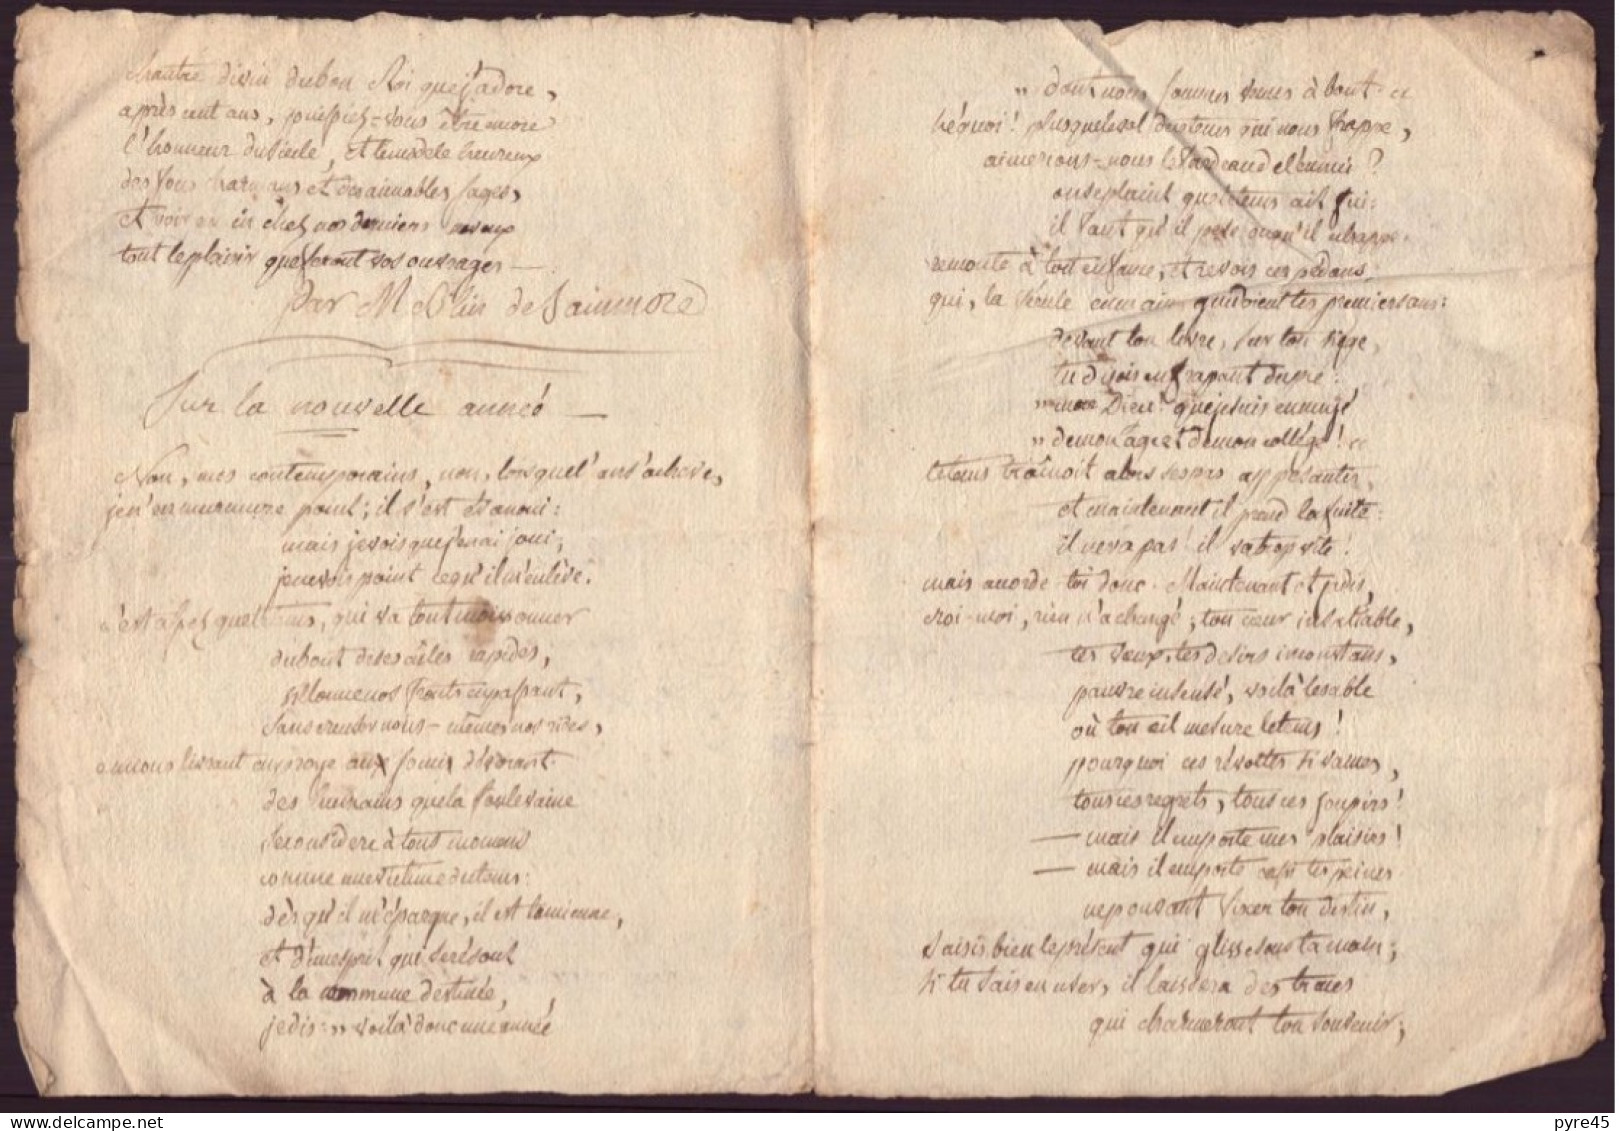 chantre divin du bon Roi que j'adore,
après cent ans, puissiez-vous être encore
l'honneur du siecle, et le modele heureux
des fous charmans et des aimables sages,
et voir en in chez nos derniers neveux
tout le plaisir que feront vos ouvrages —
par M. Blin de Sainmore
Sur la nouvelle année —
Non, mes contemporains, non, lorsque l'an s'acheve,
je n'en murmure point; il s'est évanoui:
mais je vois que j'en ai joui,
je ne vois point ce qu'il m'enlève.
c'est assez que le tems, qui va tout moissonner
du bout de ses aîles rapides,
sillonne nos fronts en passant,
sans creuser nous-mêmes nos rides,
en nous lissant en proye aux soucis dévorant
des humains que la foule vaine
se considere à tous momens
comme une victime du tems:
dès qu'il m'épargne, il est le mienne,
et d'un esprit qui se résout
à la commune destinée,
je dis: " voilà donc une année
" dont nous sommes venus à bout. "
hé quoi! plus que le vol du tems qui nous frappe,
aimerions-nous le fardeau de l'ennui?
on se plaint que le tems ait fui:
il faut qu'il pese ou qu'il échappe.
remonte à ton enfance, et revois ces pédans
qui, la férule en main guidoient tes premiers ans:
devant ton livre, sur ton siége,
tu disois en frapant du pié:
" mon Dieu! que je suis ennuyé
" de mon âge et de mon collége! "
le tems traînoit alors ses pas appesantis,
et maintenant il prend la fuite:
il ne va pas! il va trop vite!
mais accorde toi donc. Maintenant et jadis,
croi-moi, rien n'a changé; ton cœur insatiable,
tes vœux, tes desirs inconstans,
pauvre insensé, voilà le sable
où ton œil mesure le tems!
pourquoi ces révoltes si vaines,
tous ces regrets, tous ces soupirs!
— mais il emporte mes plaisirs!
— mais il emporte tes peines.
ne pouvant fixer ton destin,
saisis bien le présent qui glisse sous ta main;
si tu sais en user, il laissera des traces
qui charmeront ton souvenir;